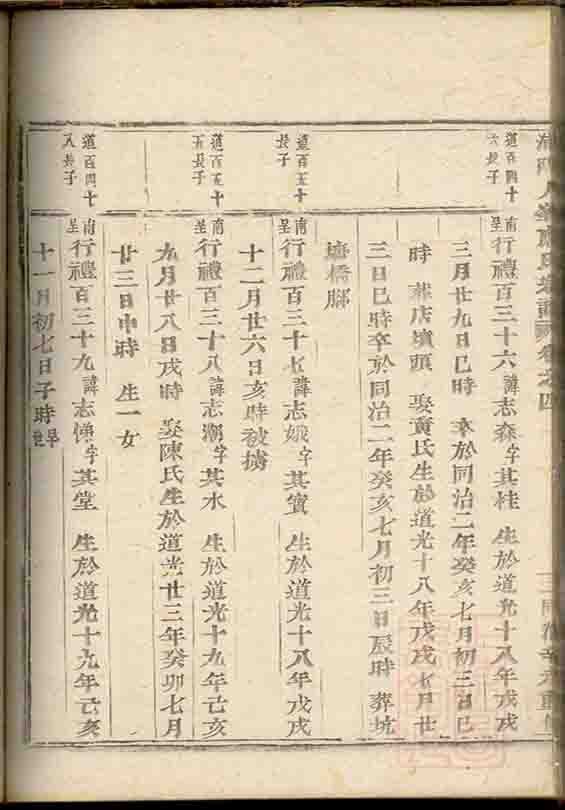 氏
卷之四
道百四十
六長子
南呈行禮百三十六諱志森字其桂 生於道光十八年戊戌
三月廿九日巳時 卒於同治二年癸亥七月初三日巳
時 店墳頭 娶黃氏生於道光十八年戊戌七月廿
三日巳時卒於同治二年癸亥七月初三日辰時 葬坑
橋腳
道百五十
長子
南呈行禮百三十七諱志娥字其寶 生於道光十八年戊戌
十二月廿六日亥時被擄
道百五十
五長子
南呈行禮百三十八諱志潮字其水 生於道光十九年己亥
九月廿八日戌時 娶陳氏生於道光廿三年癸卯七月
廿三日申時 生一女
道百四十
八長子
南呈行禮百三十九諱志字其堂 生於道光十九年己亥
十一月初七日子時早世